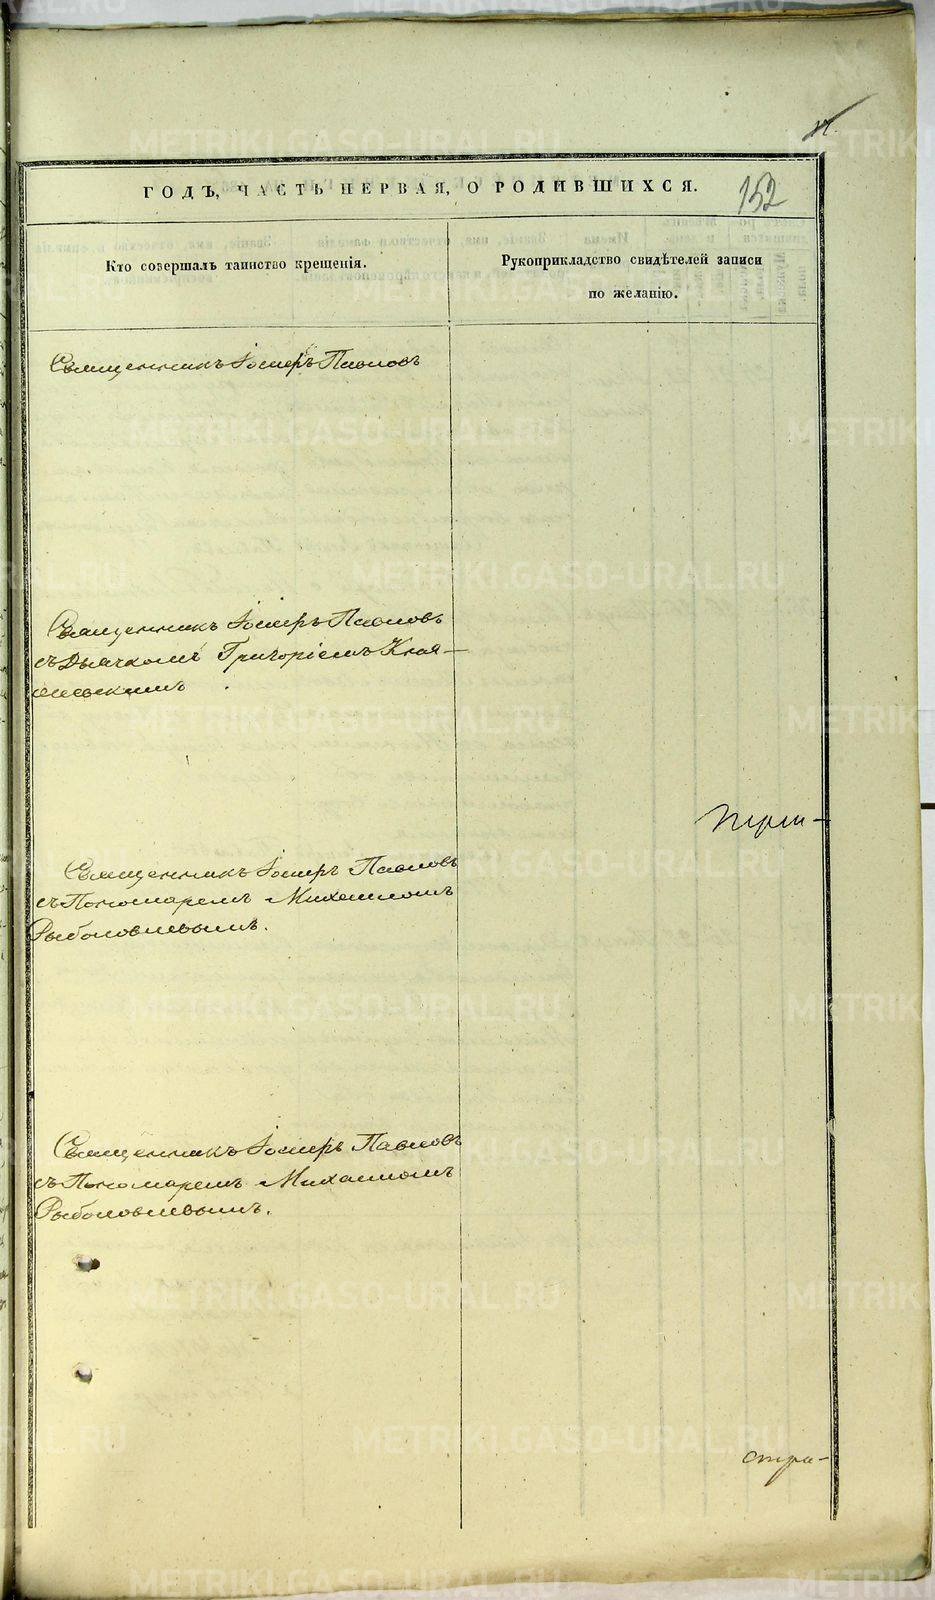 17.
ГОДЪ, ЧАСТЬ ПЕРВАЯ, О РОДИВШИХСЯ.
152
Кто совершалъ таинство крещенія.
Рукоприкладство свидѣтелей записи
по желанію.
Священникъ Іосифъ Павловъ
Священникъ Іосифъ Павловъ
съ Дьячкомъ Григоріемъ
Священникъ Іосифъ Павловъ
съ Пономаремъ Михаиломъ
Рыболовлевымъ.
Священникъ Іосифъ Павловъ
съ Пономаремъ Михаиломъ
Рыболовлевымъ.
METRIKI.GASO-URAL.RU